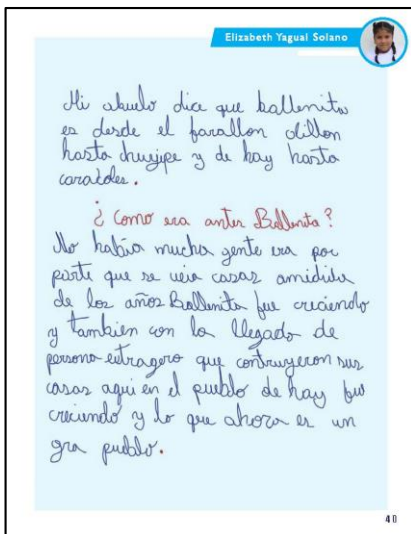 Elizabeth Yagual Solano
Mi abuelo dice que ballenita
es desde el farallon dillon
hasta chuyipe y de hay hasta
caracoles.
¿ como era antes Ballenita?
No habia mucha gente era por
parte que se veia casas amidida
de los años Ballenita fue creciendo
y tambien con la llegada de
persona extragero que contruyeron sus
casas aqui en el pueblo de hay fue
creciendo y lo que ahora es un
gra pueblo.
40